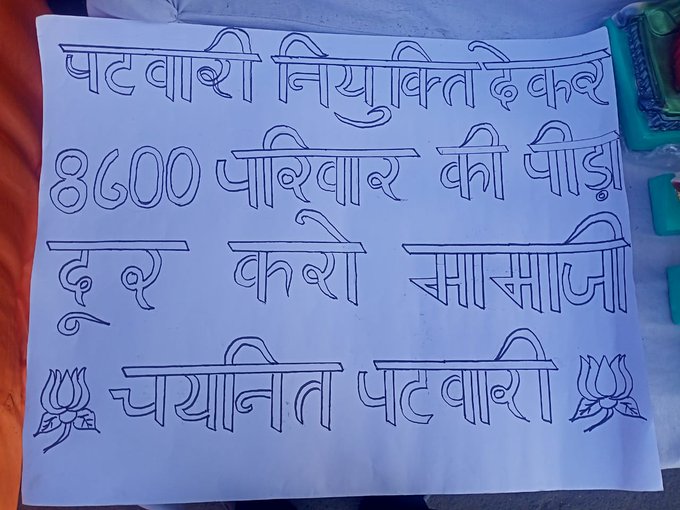 पटवारी नियुक्ति देकर
8600 परिवार की पीड़ा
दूर करो मामाजी
चयनित पटवारी